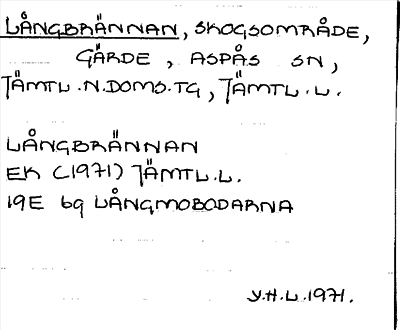 LÅNGBRÄNNAN, SKOGSOMRÅDE,
GÄRDE, ASPÅS SN,
JÄMTL.N.DOMS.TG, JÄMTL.L.
LÅNGBRÄNNAN
EK (1971) JÄMTL.L.
19E 6g LÅNGMOBODARNA
Y.H.L.1971.